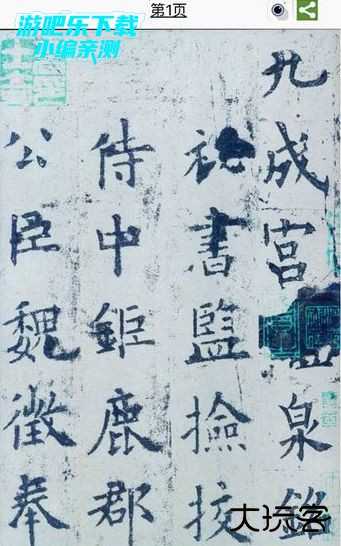 第1页
游吧乐下载
小编亲测
九成宫
泉銘
秘書監撿挍
侍中鉅鹿郡
公臣魏徵奉
大玩客